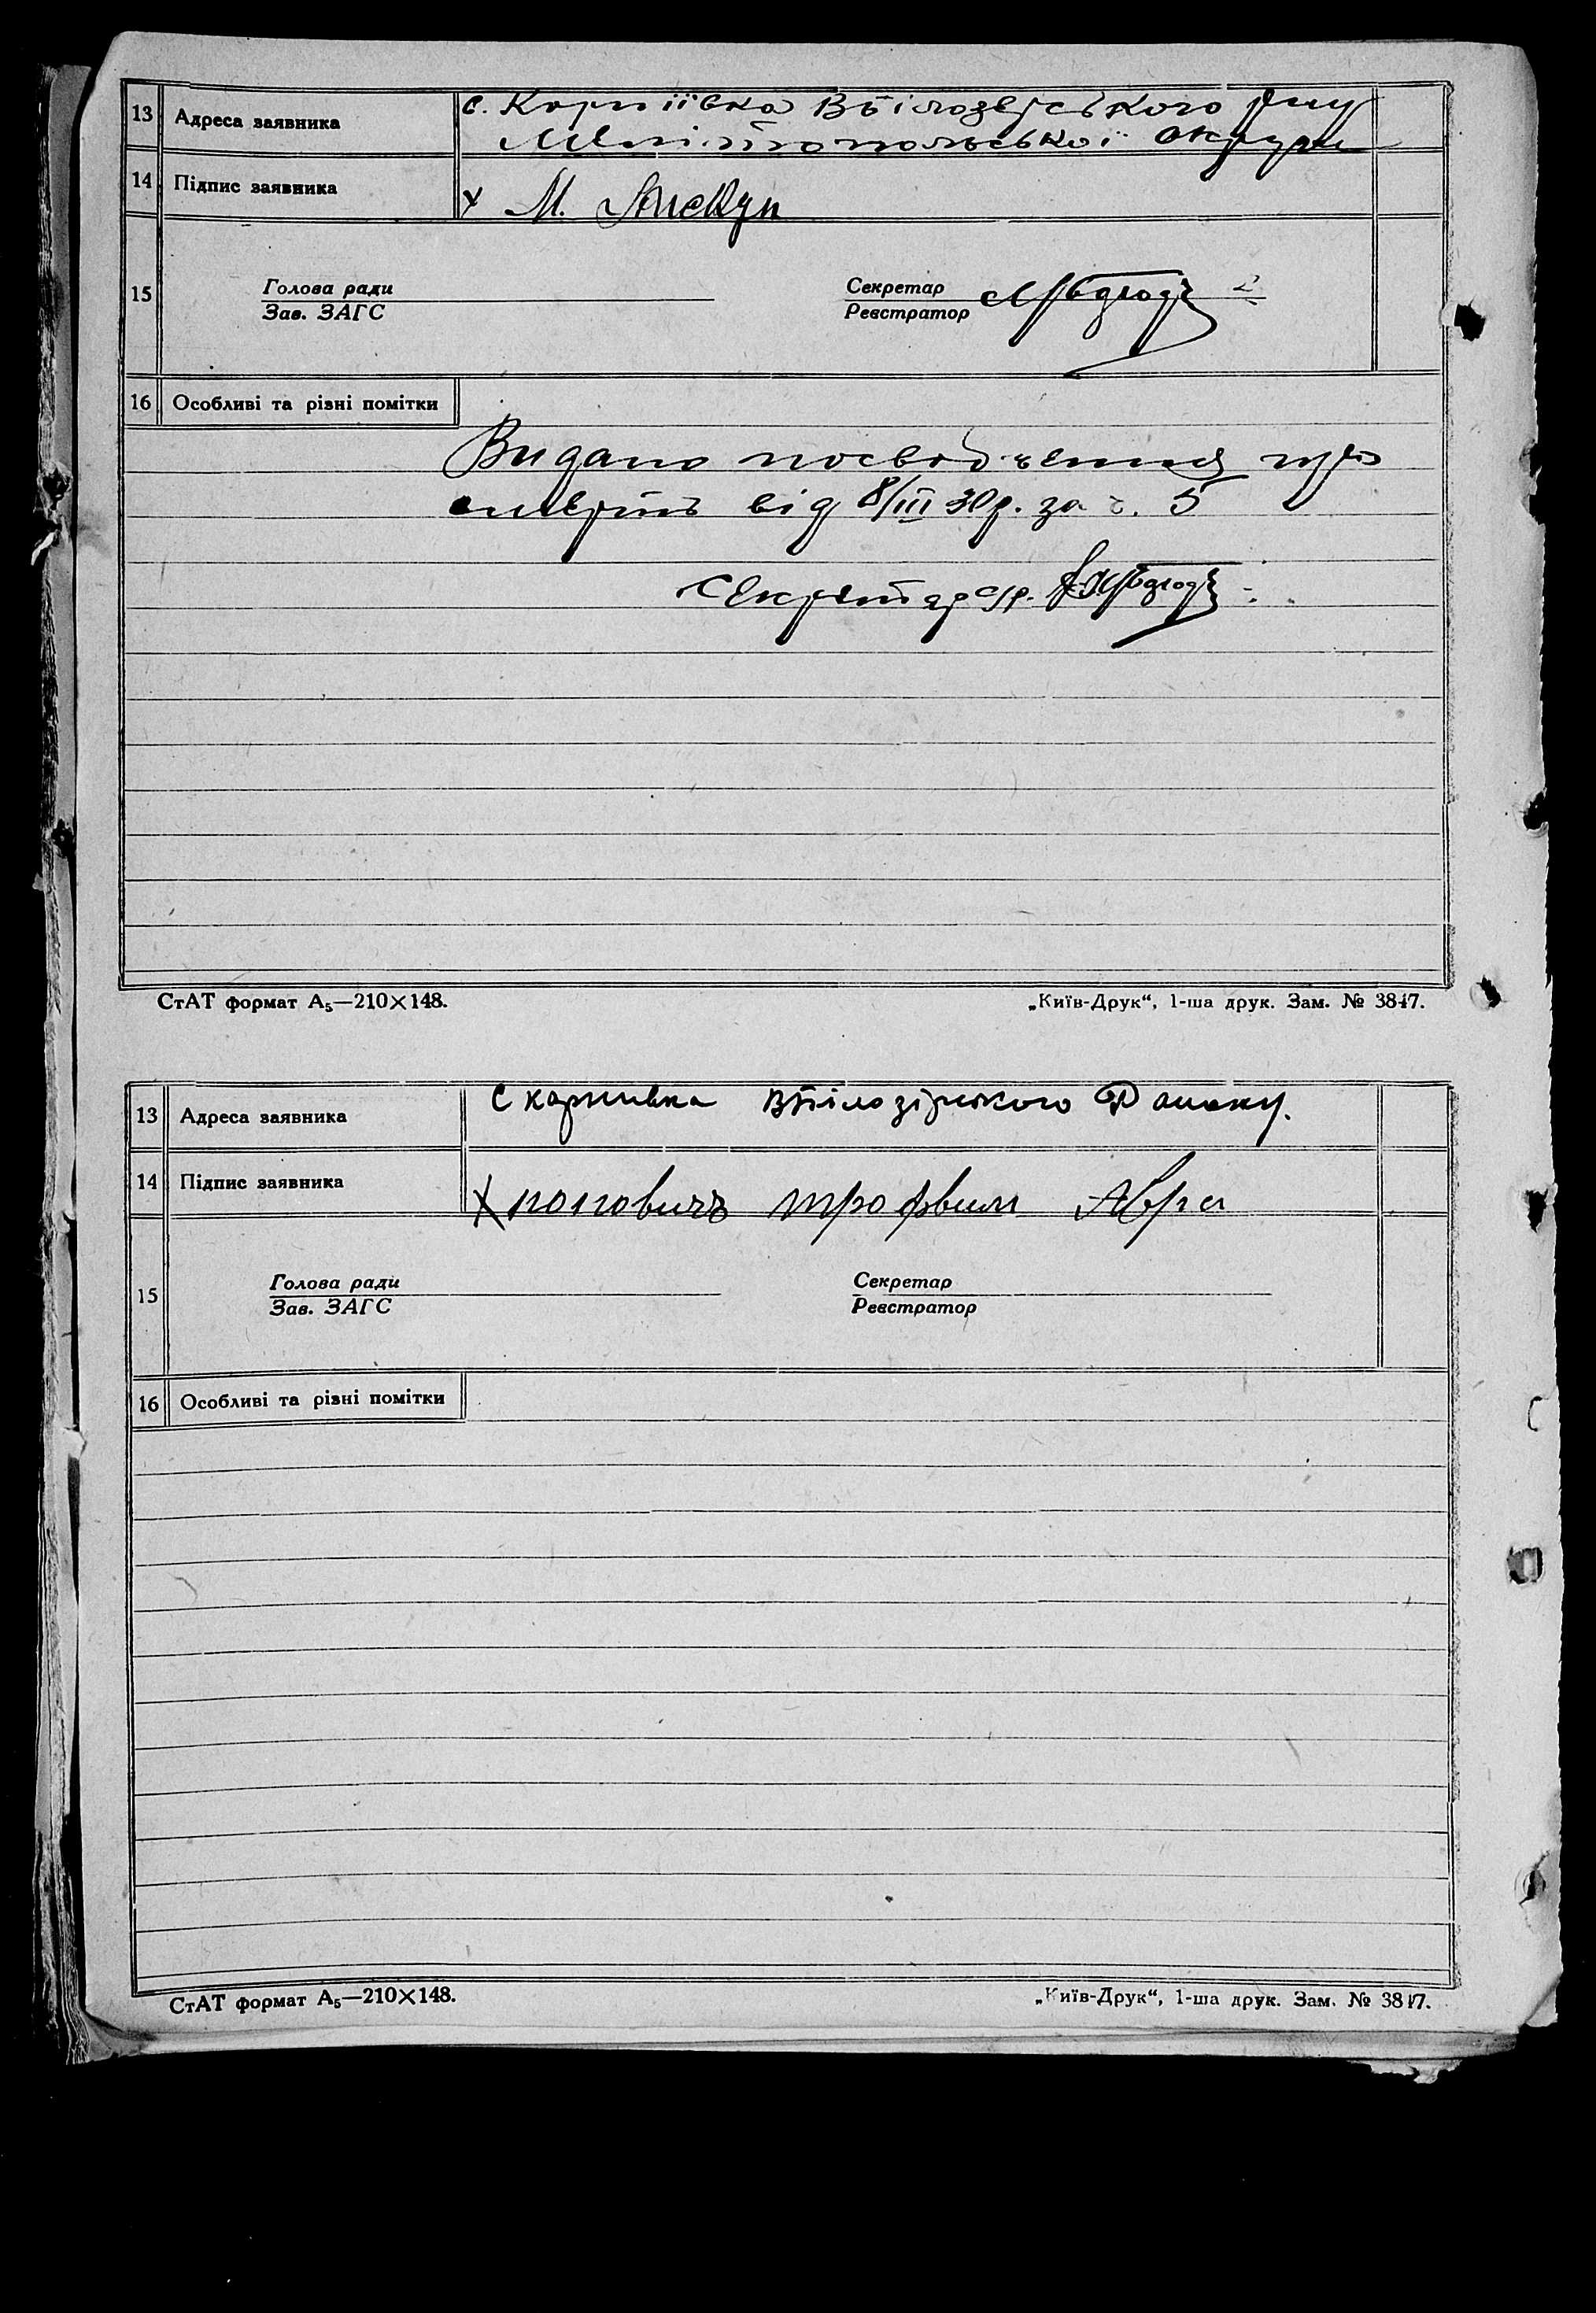 13 Адреса заявника с. Корніївка В Білозерського р-ну
Мелітопольської округи
14 Підпис заявника х М.
15 Голова ради Секретар
Зав. ЗАГС Реєстратор
16 Особливі та різні помітки
Видано посвідчення про
смерть від 8/III 30р. за ч. 5
Секретар с/р.
СтАТ формат А₅—210×148. „Київ-Друк“, 1-ша друк. Зам. № 3847.
13 Адреса заявника С Корнивка ВБілозірського Району.
14 Підпис заявника х поповичъ трофвим Авра
15 Голова ради Секретар
Зав. ЗАГС Реєстратор
16 Особливі та різні помітки
СтАТ формат А₅—210×148. „Київ-Друк“, 1-ша друк. Зам. № 3847.